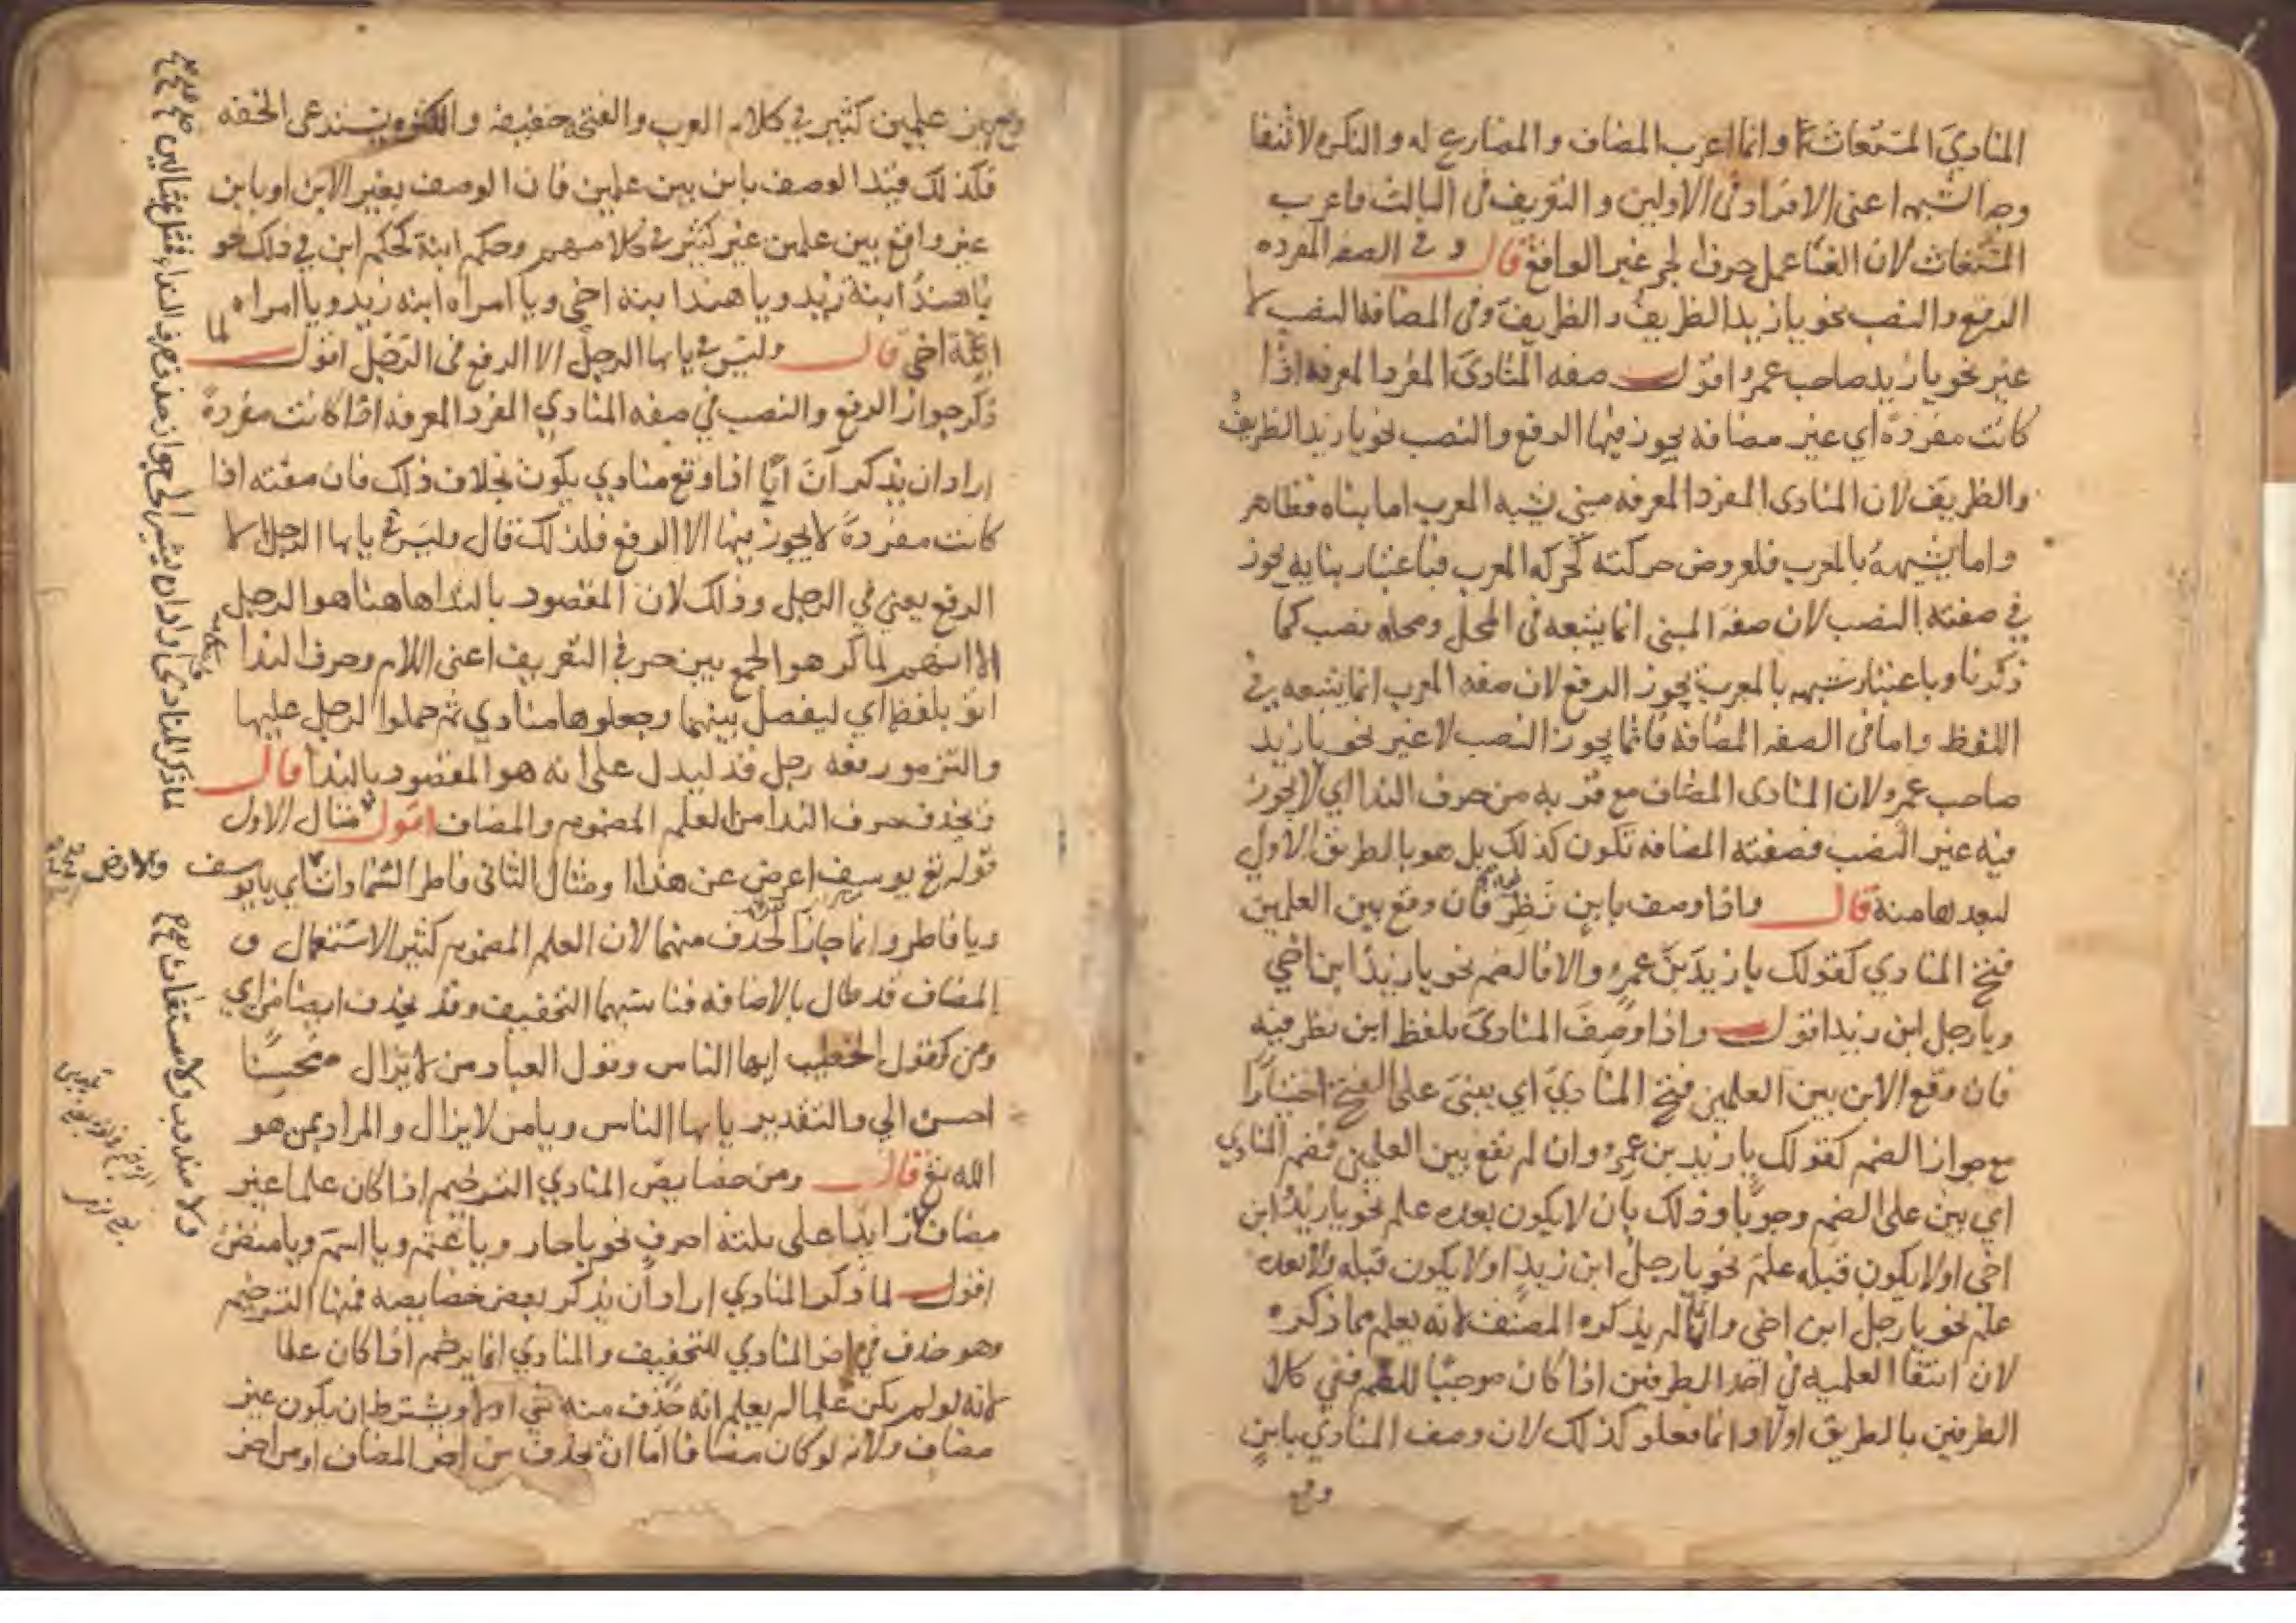 المنادي المستغاث وانما اعرب المضاف والمضارع له والنكره لانتفا
وجه الشبه اعنى الافراد فى الاولين والتعريف فى الثالث فاعرب
المستغاث لان الغا عمل حرف الجر غير الواقع قال وفى الصفه المفرده
الرفع والنصب نحو يا زيد الظريفُ والظريفَ وفى المضافه النصب لا
غير نحو يا زيد صاحب عمرو اقول صفه المنادىَ المفرد المعرفه اذا
كانت مفردةً اي غير مضافه يجوز فيها الرفع والنصب نحو يا زيد الظريفُ
والظريفَ لان المنادى المفرد المعرفه مبنى يشبه المعرب اما بناه فظاهر
واما شبهه بالمعرب فلعروض حركته كحركه المعرب فباعتبار بنايه يجوز
في صفته النصب لان صفه المبنى انما يتبعه فى المحل ومحله نصب كما
ذكرنا وباعتبار شبهه بالمعرب يجوز الرفع لان صفه المعرب انما يتبعه في
اللفظ واما فى الصفه المضافه فانما يجوز النصب لا غير نحو يا زيد
صاحب عمرو لان المنادى المضاف مع قربه من حرف الندا اي لا يجوز
فيه غير النصب فصفته المضافه تكون كذلك بل هو بالطريق الاولي
لبعدها منه قال واذا وصف بابن نظر فان وقع بين العلمين
فتح المنادي كقولك يا زيدَ بنَ عمرٍو والا فالضم نحو يا زيدُ ابن اخي
ويا رجل ابن زيد اقول واذا وصِفَ المنادىَ بلفظ ابن نظر فيه
فان وقع الابن بين العلمين فتح المناديَ اي يبنىَ على الفتح اختيارًا
مع جواز الضم كقولك يا زيد بن عمرو وان لم يقع بين العلمين فضم المنادي
اي يبن على الضم وجوبًا وذلك بان لا يكون بعده علم نحو يا زيدُ ابن
اخى او لا يكون قبله علم نحو يا رجلُ ابن زيدٍ او لا يكون قبله ولا بعده
علم نحو يا رجل ابن اخى وانما لم يذكره المصنف لانه يعلم مما ذكره
لان انتفا العلميه فى احد الطرفين اذا كان موجبًا للضم ففي كلا
الطرفين بالطريق اولا وانما فعلو كذلك لان وصف المنادي بابنٍ
وقع
وقع بين علمين كثير في كلام العرب والفتحه خفيفه والكثره يستدعى الخفه
فكذلك قيد الوصف بابن بين علمين فان الوصف بغير الابن او بابن
غير واقع بين علمين غير كثير في كلامهم وحكم ابنة كحكم ابن في ذلك نحو
يا هندُ ابنة زيد ويا هند ابنة اخى ويا امراه ابنه زيد ويا امراه
ابنة اخى قال وليس في يا ايها الرجل الا الرفع فى الرجل اقول لما
ذكر جواز الرفع والنصب في صفه المنادي المفرد المعرفه اذا كانت مفردةً
اراد ان يذكر انَ ايًّا اذا وقع منادي يكون بخلاف ذلك فان صفته اذا
كانت مفردةً لا يجوز فيها الا الرفع فلذلك قال وليس في يا ايها الرجل الا
الرفع يعني في الرجل وذلك لان المقصود بالندا هاهنا هو الرجل
الا انهم لما كرهو الجمع بين حرفي التعريف اعنى اللام وحرف الندا
اتو بلفظ اي ليفصل بينهما وجعلوها منادي ثم حملوا الرجل عليها
والتزمو رفعه ليدل على انه هو المقصود بالندا قال
ويحذف حرف الندا من العلم المضموم والمضاف اقول مثال الاول
قوله تع يوسف اعرض عن هذا ومثال الثانى فاطر السموات اي يا يوسف
ويا فاطر وانما جاز الحذف منهما لان العلم المضموم كثير الاستعمال و
المضاف قد طال بالاضافه فناسبهما التخفيف وقد يحذف ايضا من اي
ومن كقول الخطيب ايها الناس وقول العباد من لا يزال محسنًا
احسن الي والتقدير يا ايها الناس ويا من لا يزال والمراد بمن هو
الله تع قال ومن خصايص المنادي الترخيم اذا كان علما غير
مضاف زايدًا على ثلثه احرفٍ نحو يا حار ويا عثم ويا اسم ويا منص
اقول لما ذكر المنادي اراد ان يذكر بعض خصايصه فمنها الترخيم
وهو حذف في اخر المنادي للتخفيف والمنادي انما يرخم اذا كان علما
لانه لو لم يكن علما لم يعلم انه حذف منه شي او لا ويشترط ان يكون غير
مضاف ولانه لو كان مضافا اما ان يحذف من اخر المضاف او من اخر
لما ذكر المنادى اراد ان يشير الى جواز حذف حرف الندا فقال
والارض
ولا مندوب ولا مستغاث